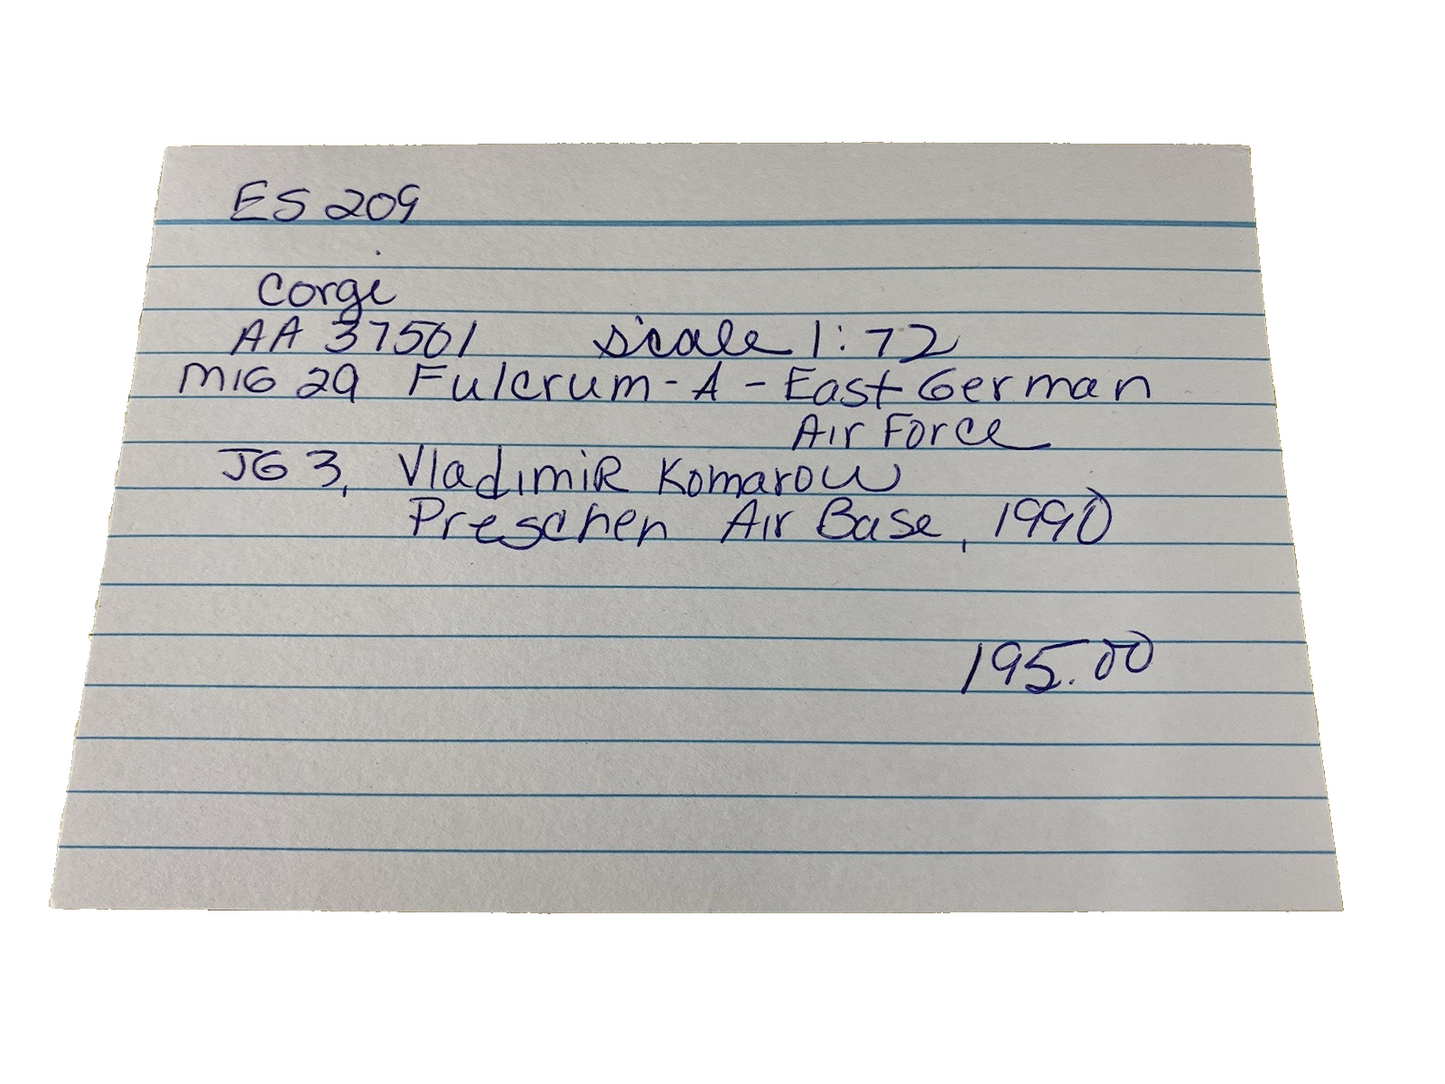 ES 209
Corgi
AA 37501 scale 1:72
MIG 29 Fulcrum-A - East German
Air Force
JG 3, Vladimir Komarow
Preschen Air Base, 1990
195.00